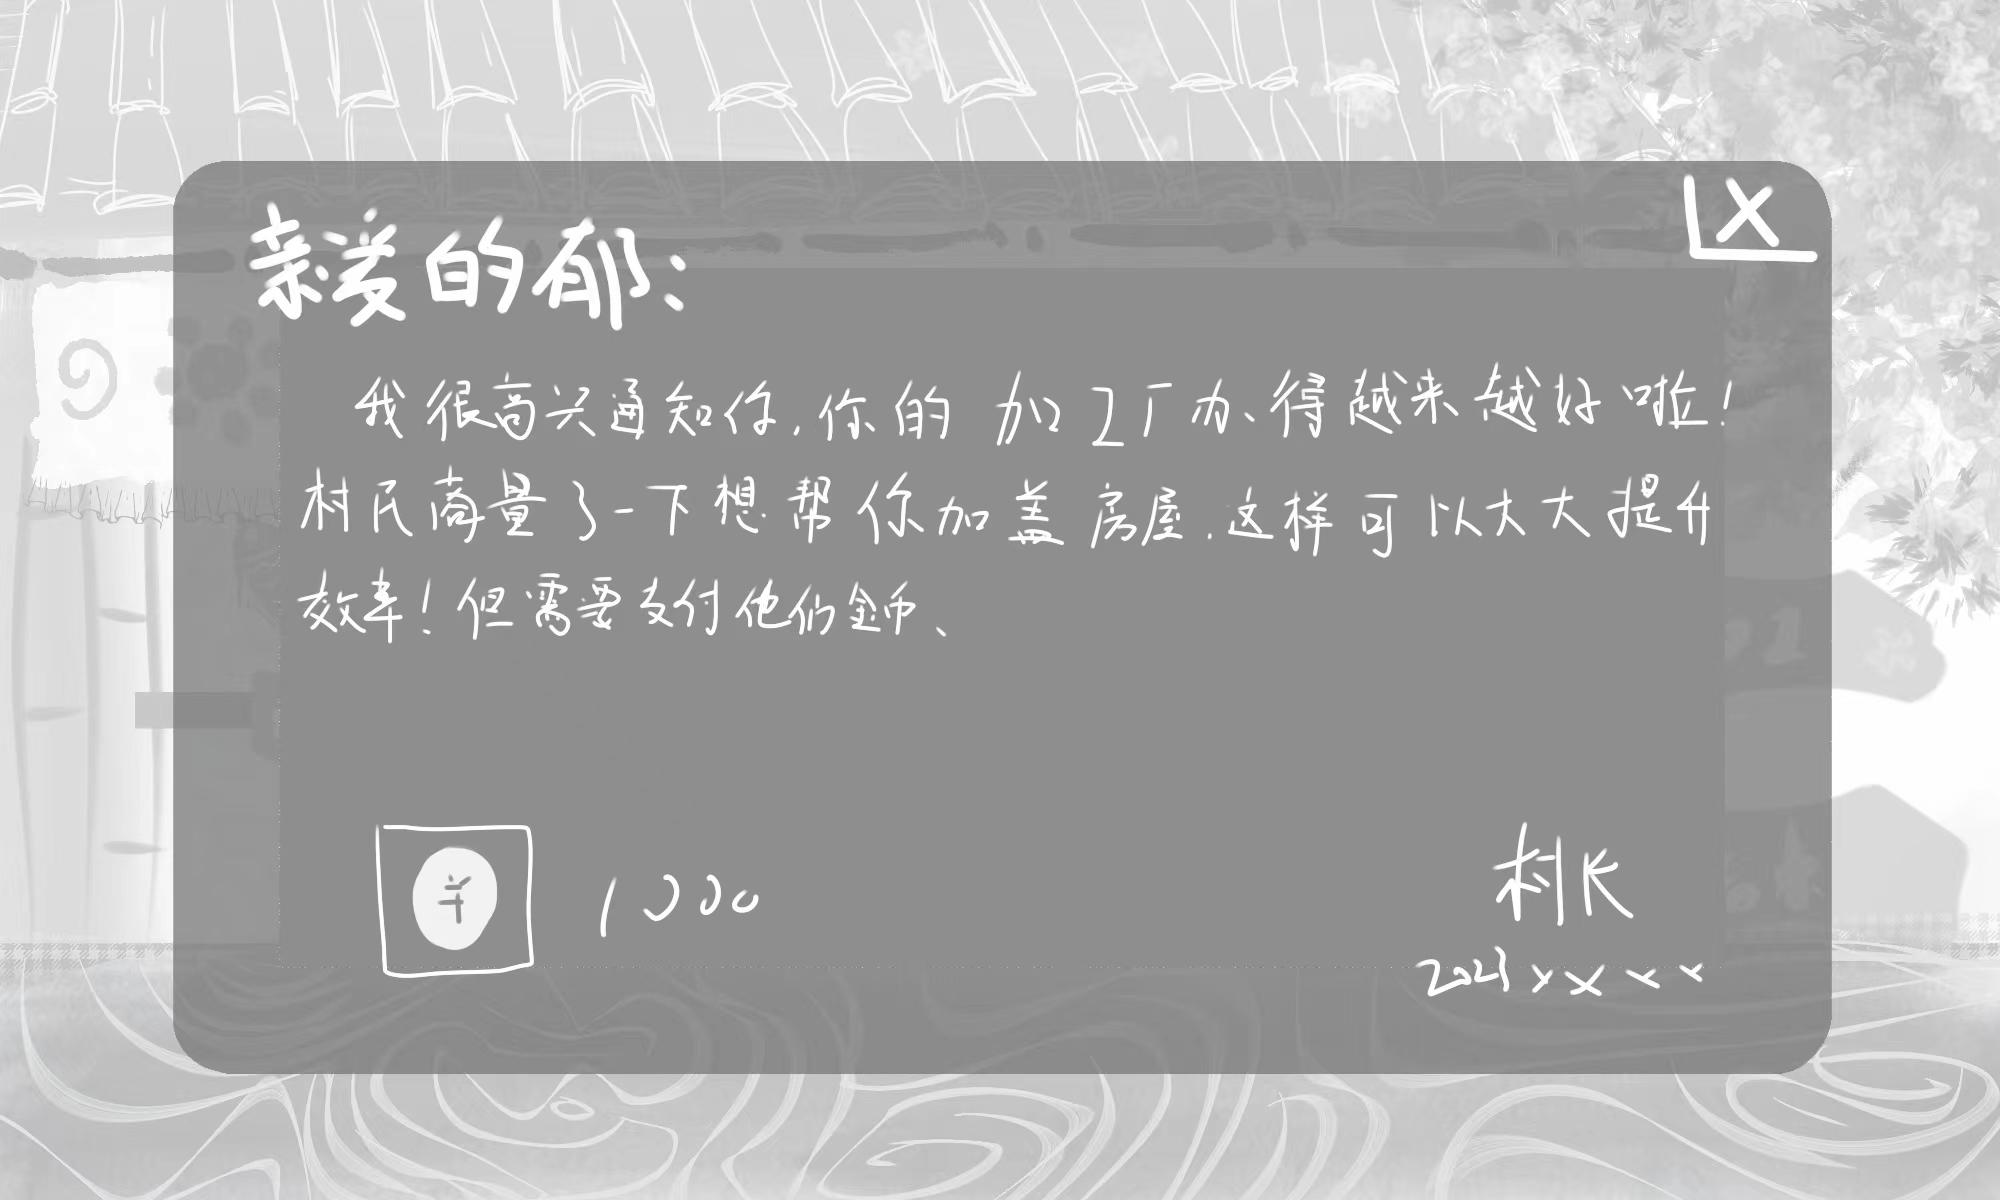 X
亲爱的郁：
我很高兴通知你，你的加工厂办得越来越好啦！
村民商量了一下想帮你加盖房屋，这样可以大大提升
效率！但需要支付他们金币、
¥ 1000
村长
2023xxxx